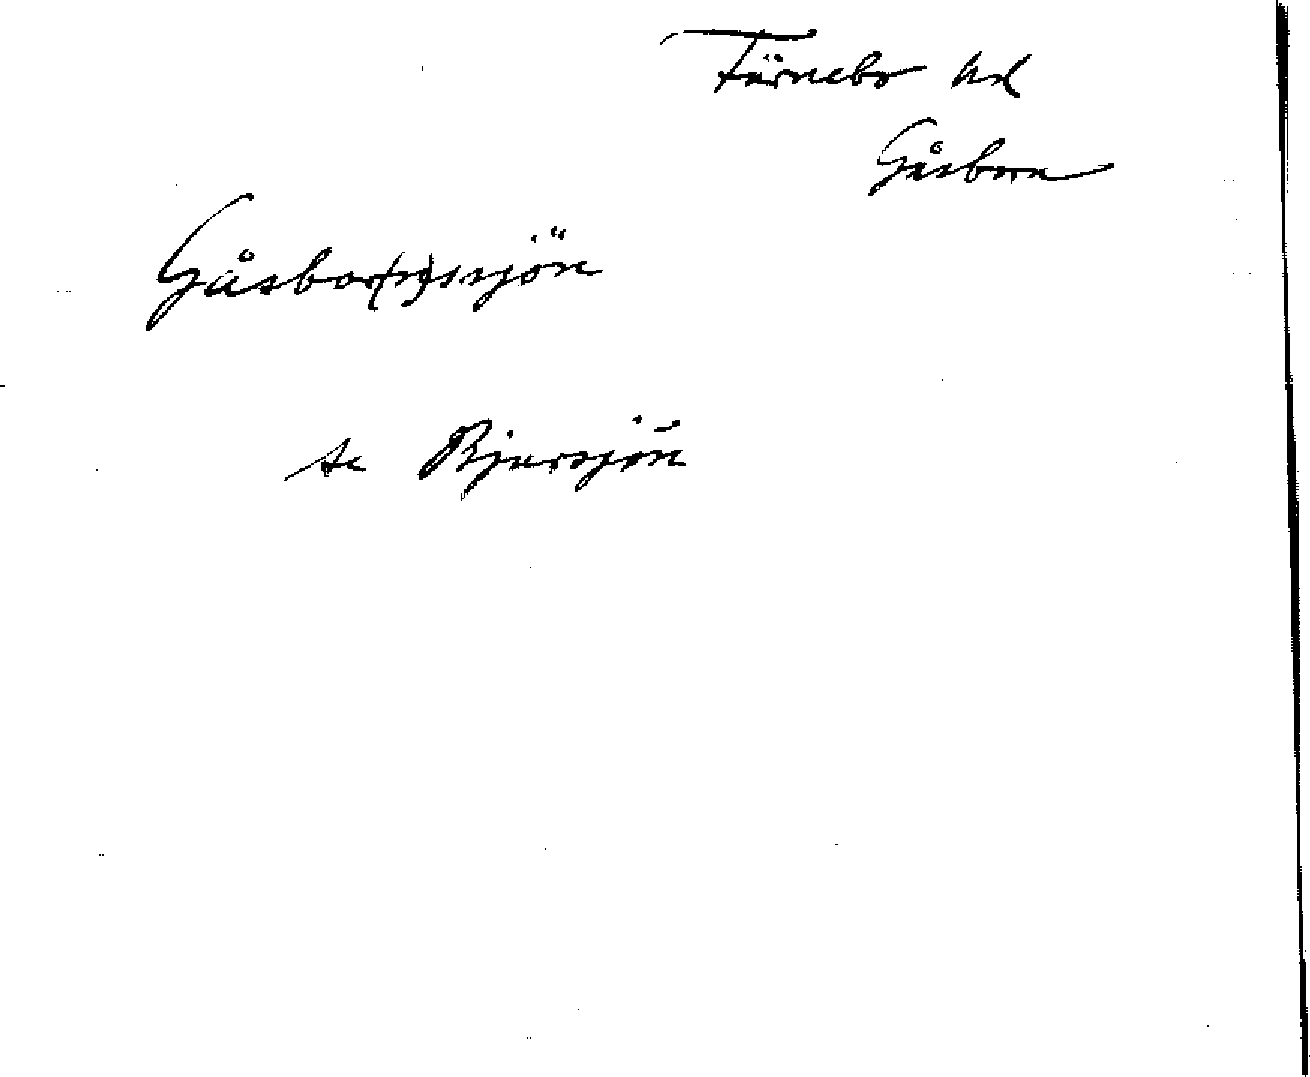 Färnebo hd
Gåsborn
Gåsbor(n)ssjön
se Bjursjön